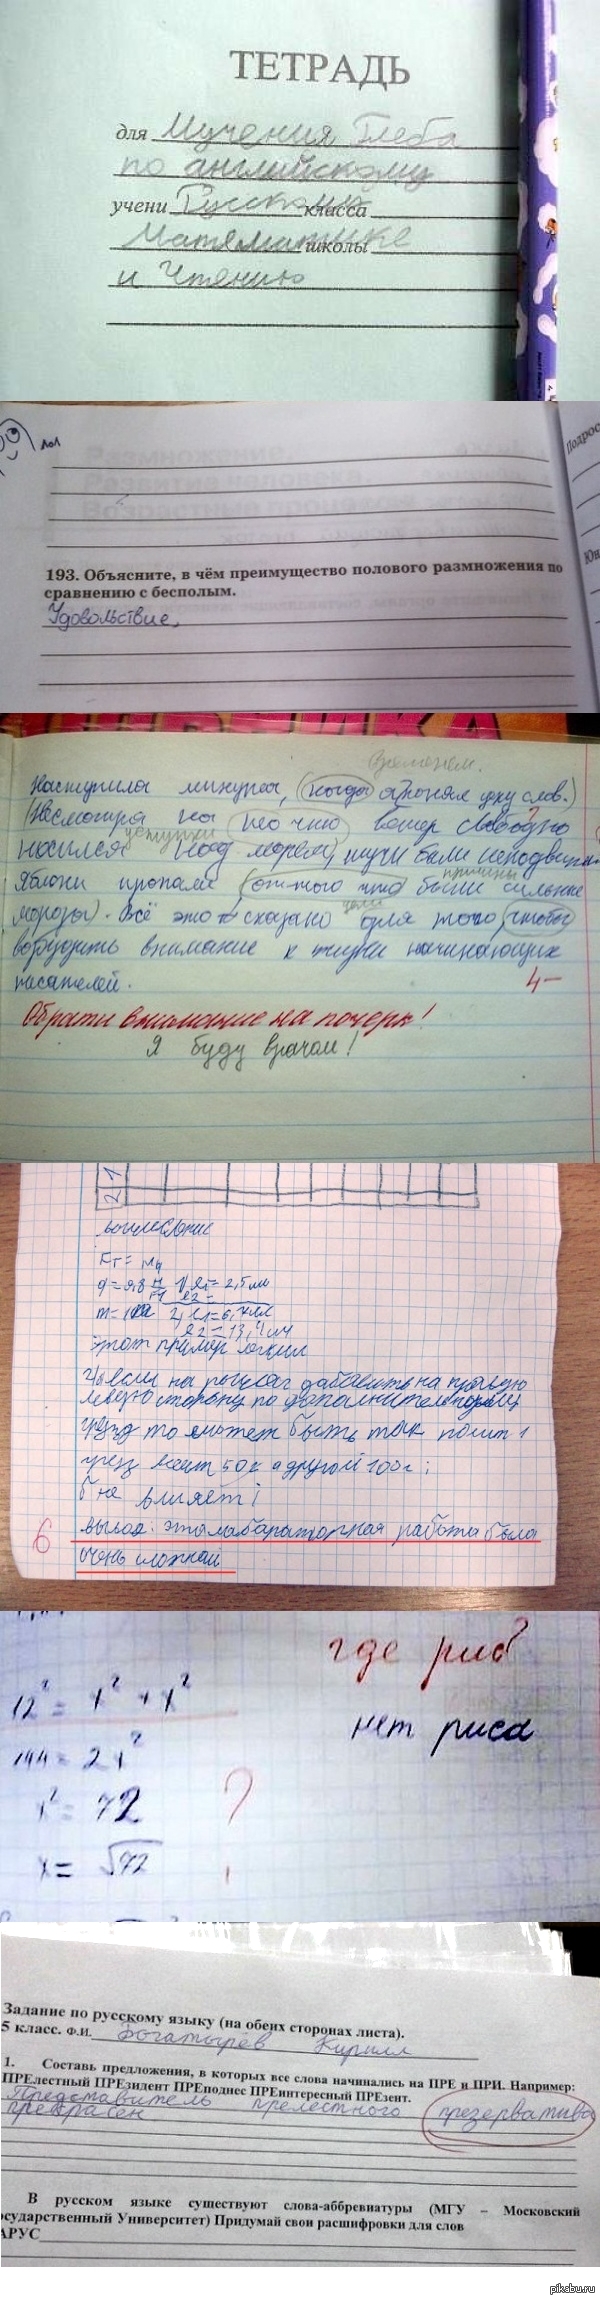 ТЕТРАДЬ
для Мучения Глеба
по английскому
учени Русскому класса
Математике школы
и Чтению
лол
Подрос
193. Объясните, в чём преимущество полового размножения по
сравнению с бесполым.
Удовольствие.
временем.
Наступила минута, (когда я понял уху слов.)
(Несмотря на то что ветер свободно
уступки
носился над морем), тучи были неподвижн
причины
Яблони пропали (оттого что были сильные
цели
морозы). Всё это сказано для того, чтобы
возбудить внимание к жизни начинающих
писателей.
4-
Обрати внимание на почерк!
Я буду врачом!
2 1
Fт = mg
g = 9,8 Н 1) l1 = 2,5 см
l2 =
2) l1 = 6,
l2 = 13,4 см
этот пример легкий
если на рычаг добавить на правую
левую сторону по дополнительному
грузу то может быть так
груз весит 50г а другой 100г;
не влияет
6
вывод: эта лабараторная работа была
очень сложной
где рис?
12² = x² + x²
нет риса
144 = 2x²
x² = 72
?
x = √72
Задание по русскому языку (на обеих сторонах листа).
5 класс. Ф.И. Богатырёв Кирилл
1. Составь предложения, в которых все слова начинались на ПРЕ и ПРИ. Например:
ПРЕлестный ПРЕзидент ПРЕподнес ПРЕинтересный ПРЕзент.
Представитель прелестного презерватива
прекрасен
В русском языке существуют слова-аббревиатуры (МГУ – Московский
осударственный Университет) Придумай свои расшифровки для слов
АРУС
pikabu.ru